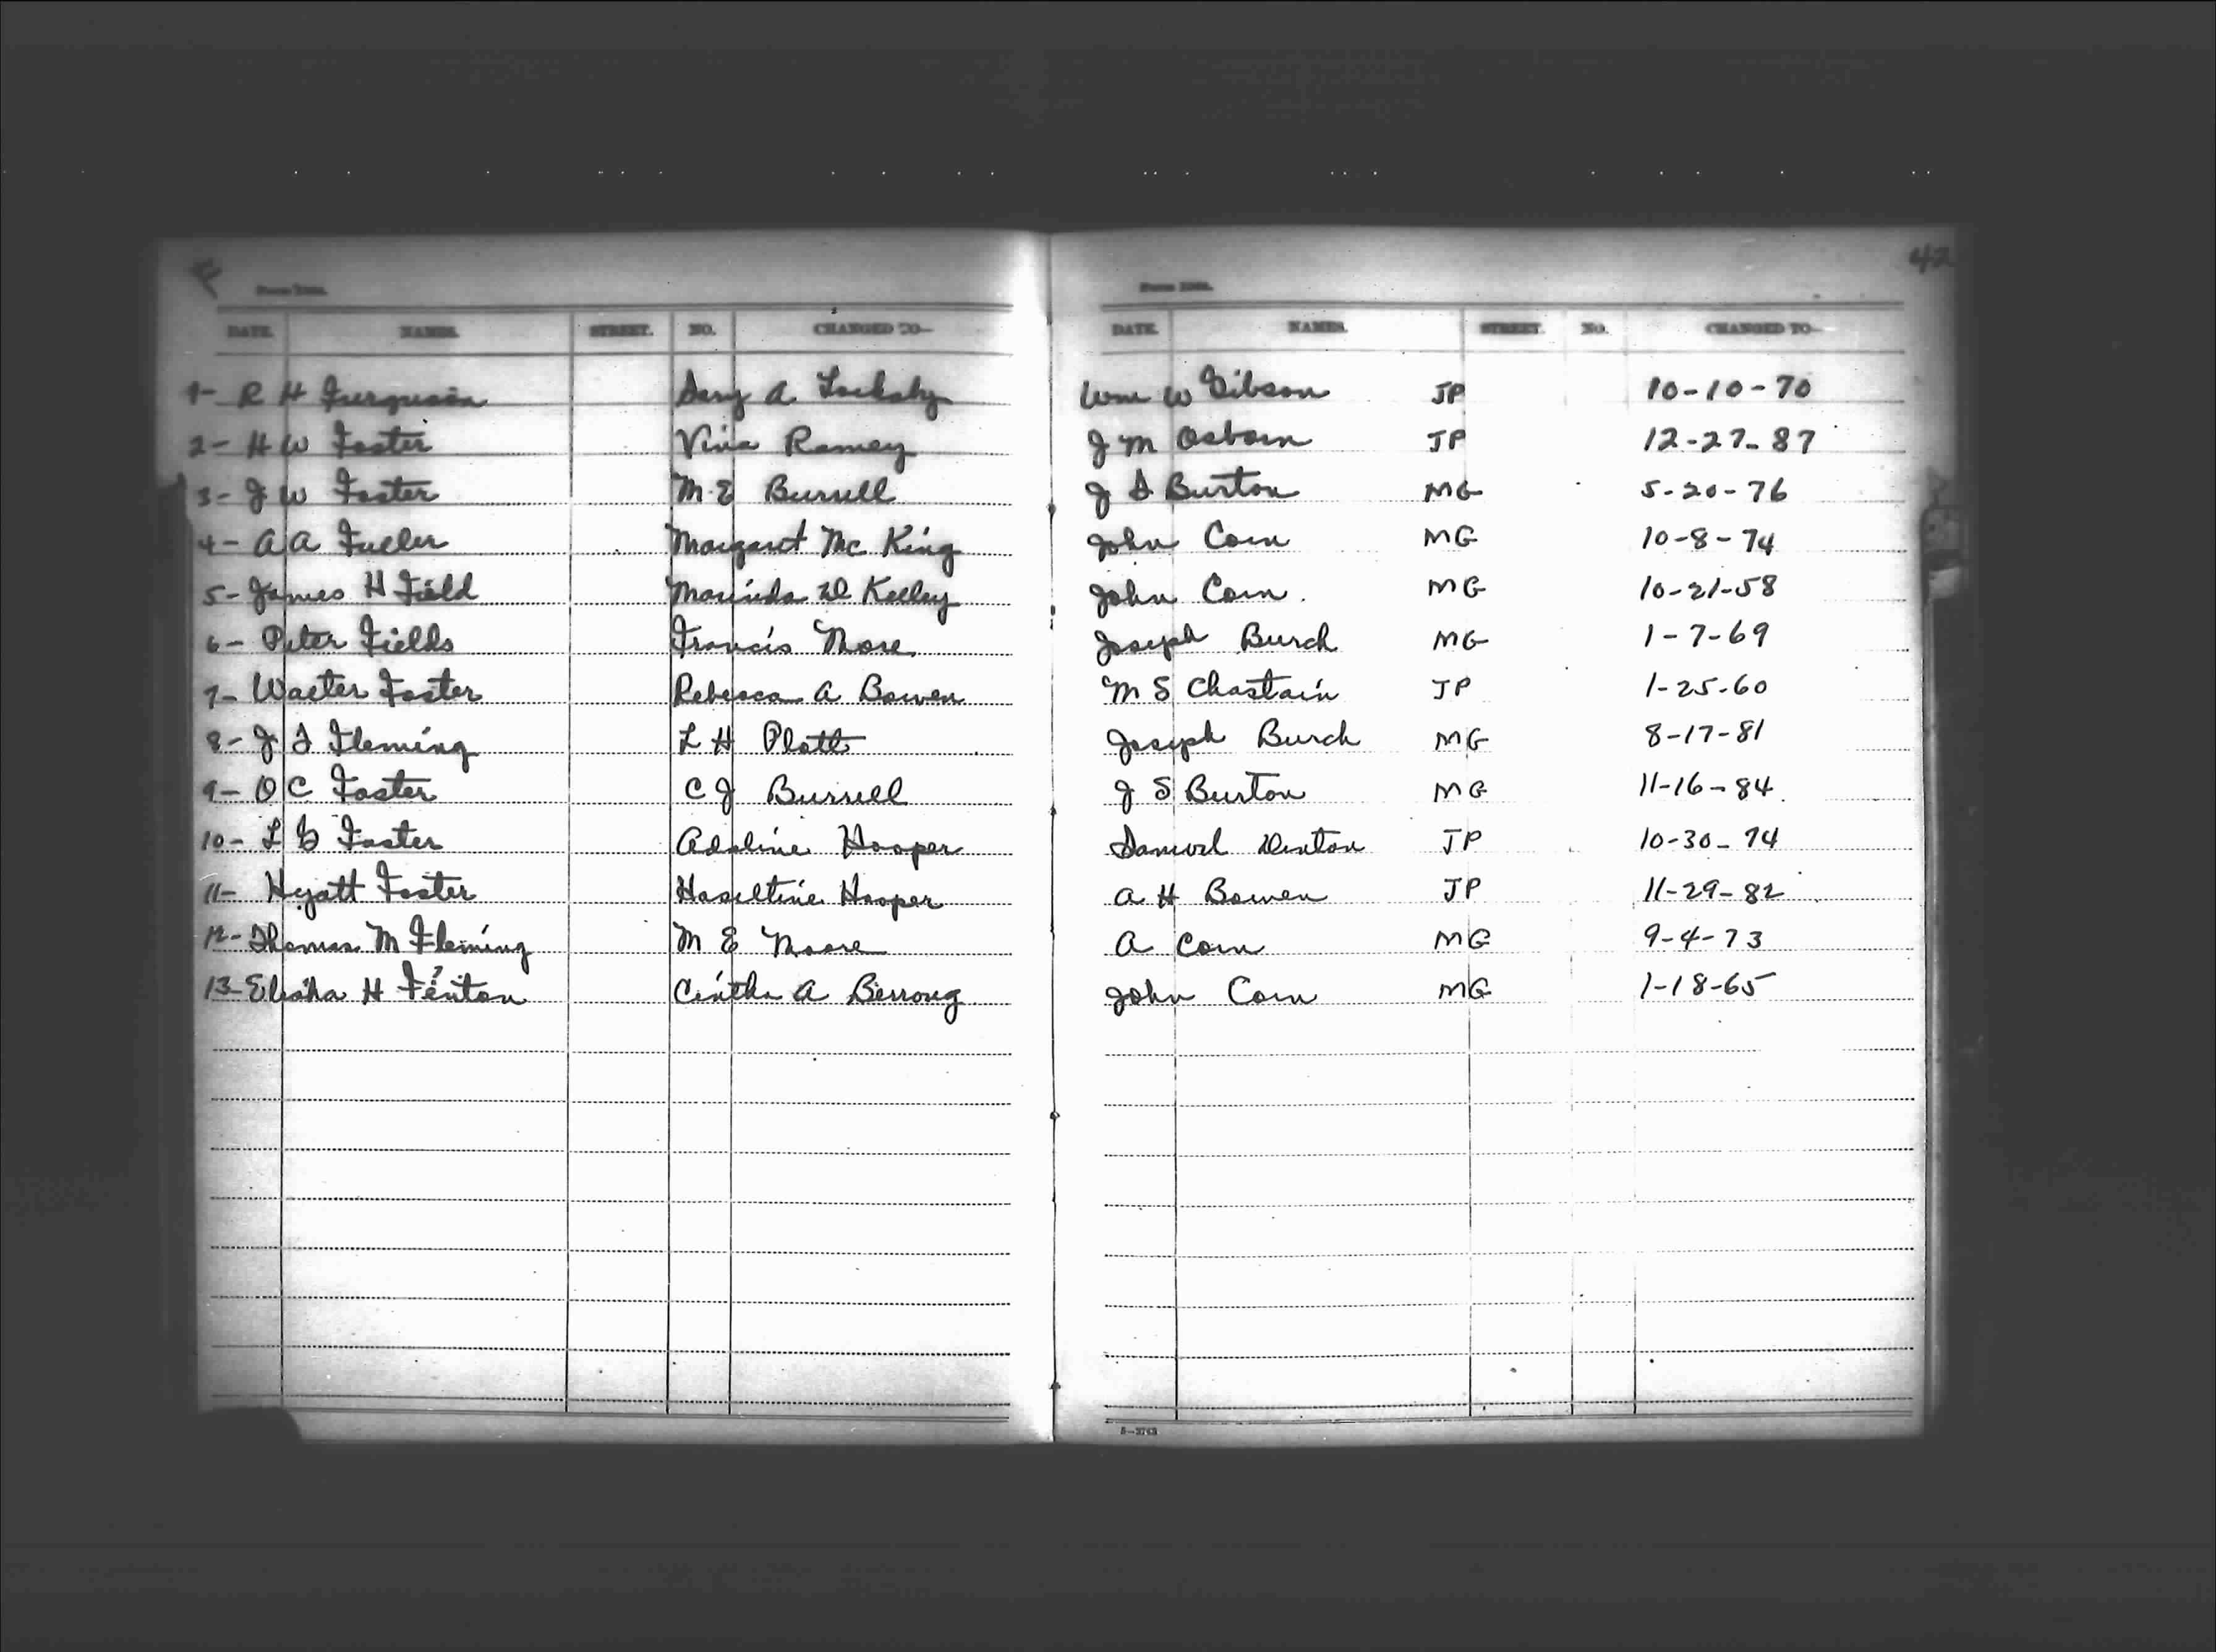 42
DATE. NAMES. STREET. NO. CHANGED TO— DATE. NAMES. STREET. NO. CHANGED TO—
1- R H Ferguson A Wm W Gibson JP 10-10-70
2- H W Foster Vina Ramey J M Osborn JP 12-27-87
3- J W Foster M E Burrell J S Burton MG 5-20-76
4- A A Fuller Margaret Mc King John Corn MG 10-8-74
5- James H Field Marinda D Kelley John Corn MG 10-21-58
6- Peter Fields Francis More Joseph Burch MG 1-7-69
7- Walter Foster Rebecca A Bowen M S Chastain JP 1-25-60
8- J F Fleming L H Platt Joseph Burch MG 8-17-81
9- O C Foster C J Burrell J S Burton MG 11-16-84
10- L G Foster Adaline Hooper Samuel Denton JP 10-30-74
11- Hyatt Foster Haseltine Hooper A H Bowen JP 11-29-82
12- Thomas M Fleming M E Moore A Corn MG 9-4-73
13- Elisha H Fenton Cintha A Berrong John Corn MG 1-18-65